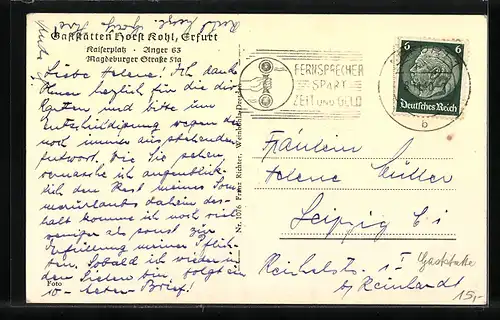 Gaststätten Horst Kohl, Erfurt
Kaiserplatz · Anger 63
Magdeburger Straße 51a
Liebe Helene! Ich danke
Ihnen herzlich für die
Karten und bitte um
Entschuldigung wegen der
noch immer ausstehenden
Antwort. Wie Sie sehen,
vernasche ich augenblick-
lich den Rest meines Som-
merurlaubs daheim des-
halb komme ich noch viel
weniger als sonst zur
Erfüllung meiner Pflich-
ten. Sobald ich wieder in
den Sielen bin, folgt ein
10-Seiten-Brief!
Foto
Nr. 1076 Franz Richter,
FERNSPRECHER
SPART
ZEIT UND GELD
6 6
Deutsches Reich
b
Fräulein
Helene Müller
Leipzig C 1
Reichelstr. 1 Gaststätte
b/ Reinhardt
15,-